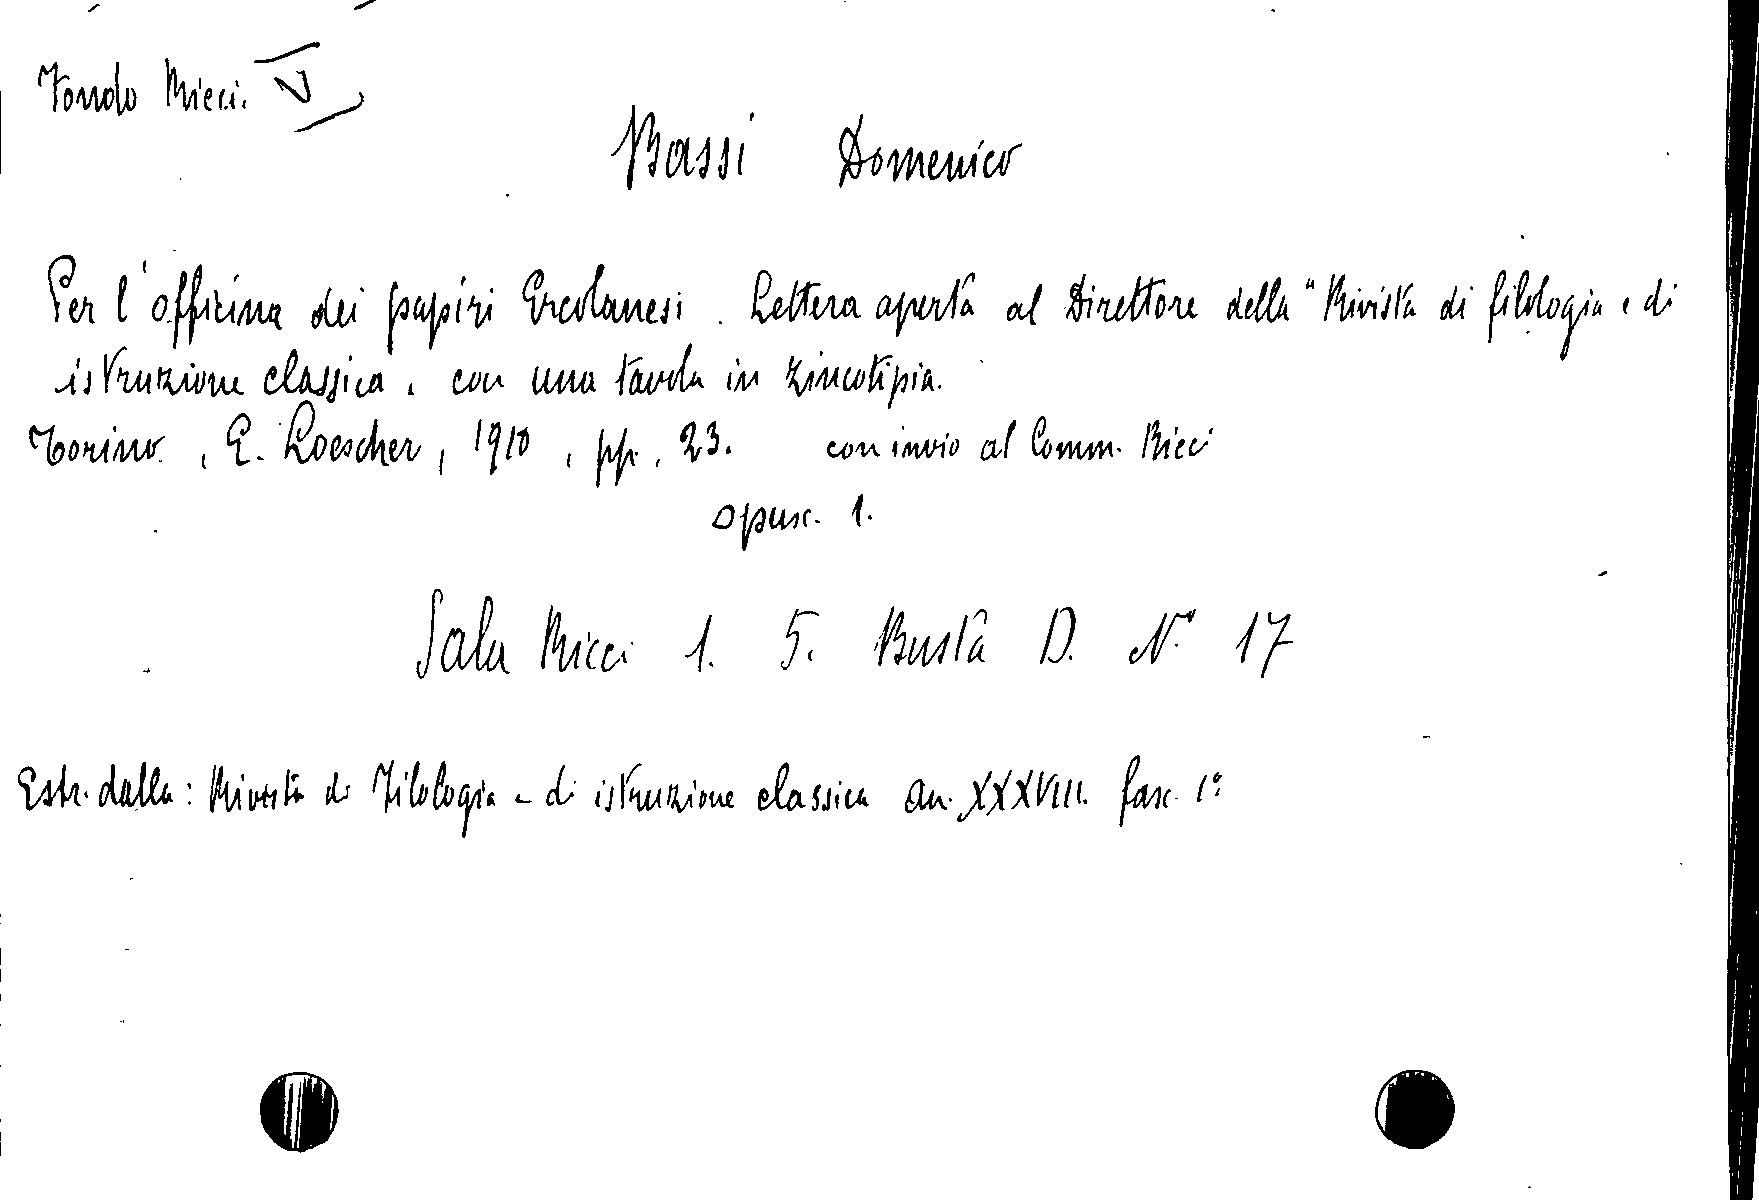 Fondo Ricci. V
Bassi Domenico
Per l'officina dei papiri Ercolanesi. Lettera aperta al Direttore della "Rivista di filologia e di
istruzione classica, con una tavola in zincotipia.
Torino, E. Loescher, 1910, pp. 23. con invio al Comm. Ricci
opusc. 1.
Sala Ricci 1. 5. Busta D. N. 17
Estr. dalla: Rivista di Filologia e di istruzione classica an. XXXVIII. fasc. 1°